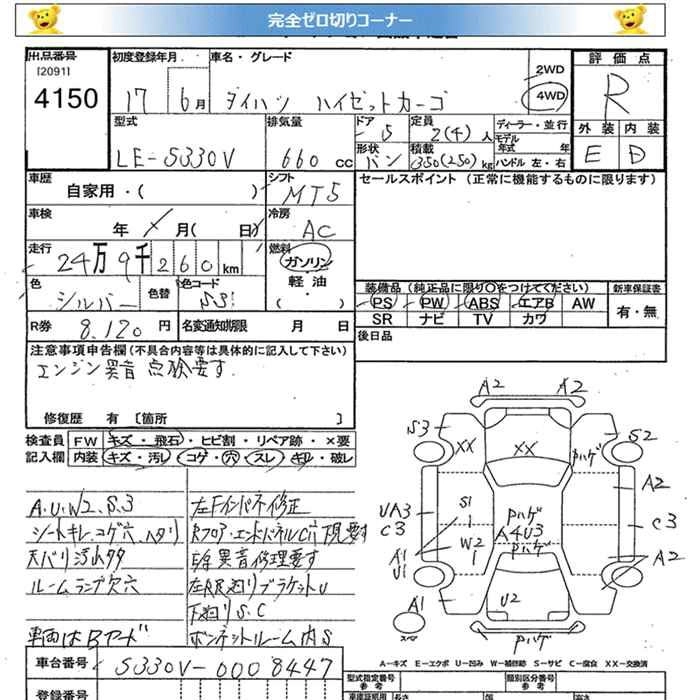 完全ゼロ切りコーナー
出品番号
[2091]
4150
初度登録年月
17 6月
車名・グレード
ダイハツ ハイゼットカーゴ
2WD
4WD
評価点
R
外装 内装
E D
型式
LE-S330V
排気量
660 cc
ドア
5
定員
2(4)人
ディーラー・並行
モデル年式 年
形状
バン
積載
350(250)kg
ハンドル 左・右
車歴
自家用・( )
シフト
MT5
セールスポイント (正常に機能するものに限ります)
車検
年 月( 日)
冷房
AC
走行
24万9千260km
燃料
ガソリン
軽油
( )
色
シルバー
色替
色コード
S31
装備品 (純正品に限り○をつけてください)
新車保証書
PS PW ABS エアB AW
有・無
SR ナビ TV カワ
R券 8,120円
名変通知期限 月 日
後日品
注意事項申告欄(不具合内容等は具体的に記入して下さい)
エンジン異音 点検要す
修復歴 有 [箇所 ]
検査員
記入欄
FW キズ・飛石・ヒビ割・リペア跡・×要
内装 キズ・汚レ コゲ・穴・スレ・キレ・破レ
A.U.W2.S.3
シートキレ.コゲ穴.ヘタリ
天バリ汚れタタ
ルームランプ穴
車両はBヤード
左Fインパネ修正
RフロアエンドパネルC穴 現要す
E/G異音修理要す
下廻りS.C
ボンネットルーム内S
A2 A2
S3
XX
XX
S2
Pハゲ
A2
UA3
C3
S1
Pハゲ
A4U3
Pハゲ
C3
W2
A1
U1
A2
A1
U2
スペ
Pハゲ
A-キズ E-エクボ U-凹み W-補修跡 S-サビ C-腐食 XX-交換済
車台番号
S330V-0008447
登録番号
型式指定番号
参考
類別区分番号
参考